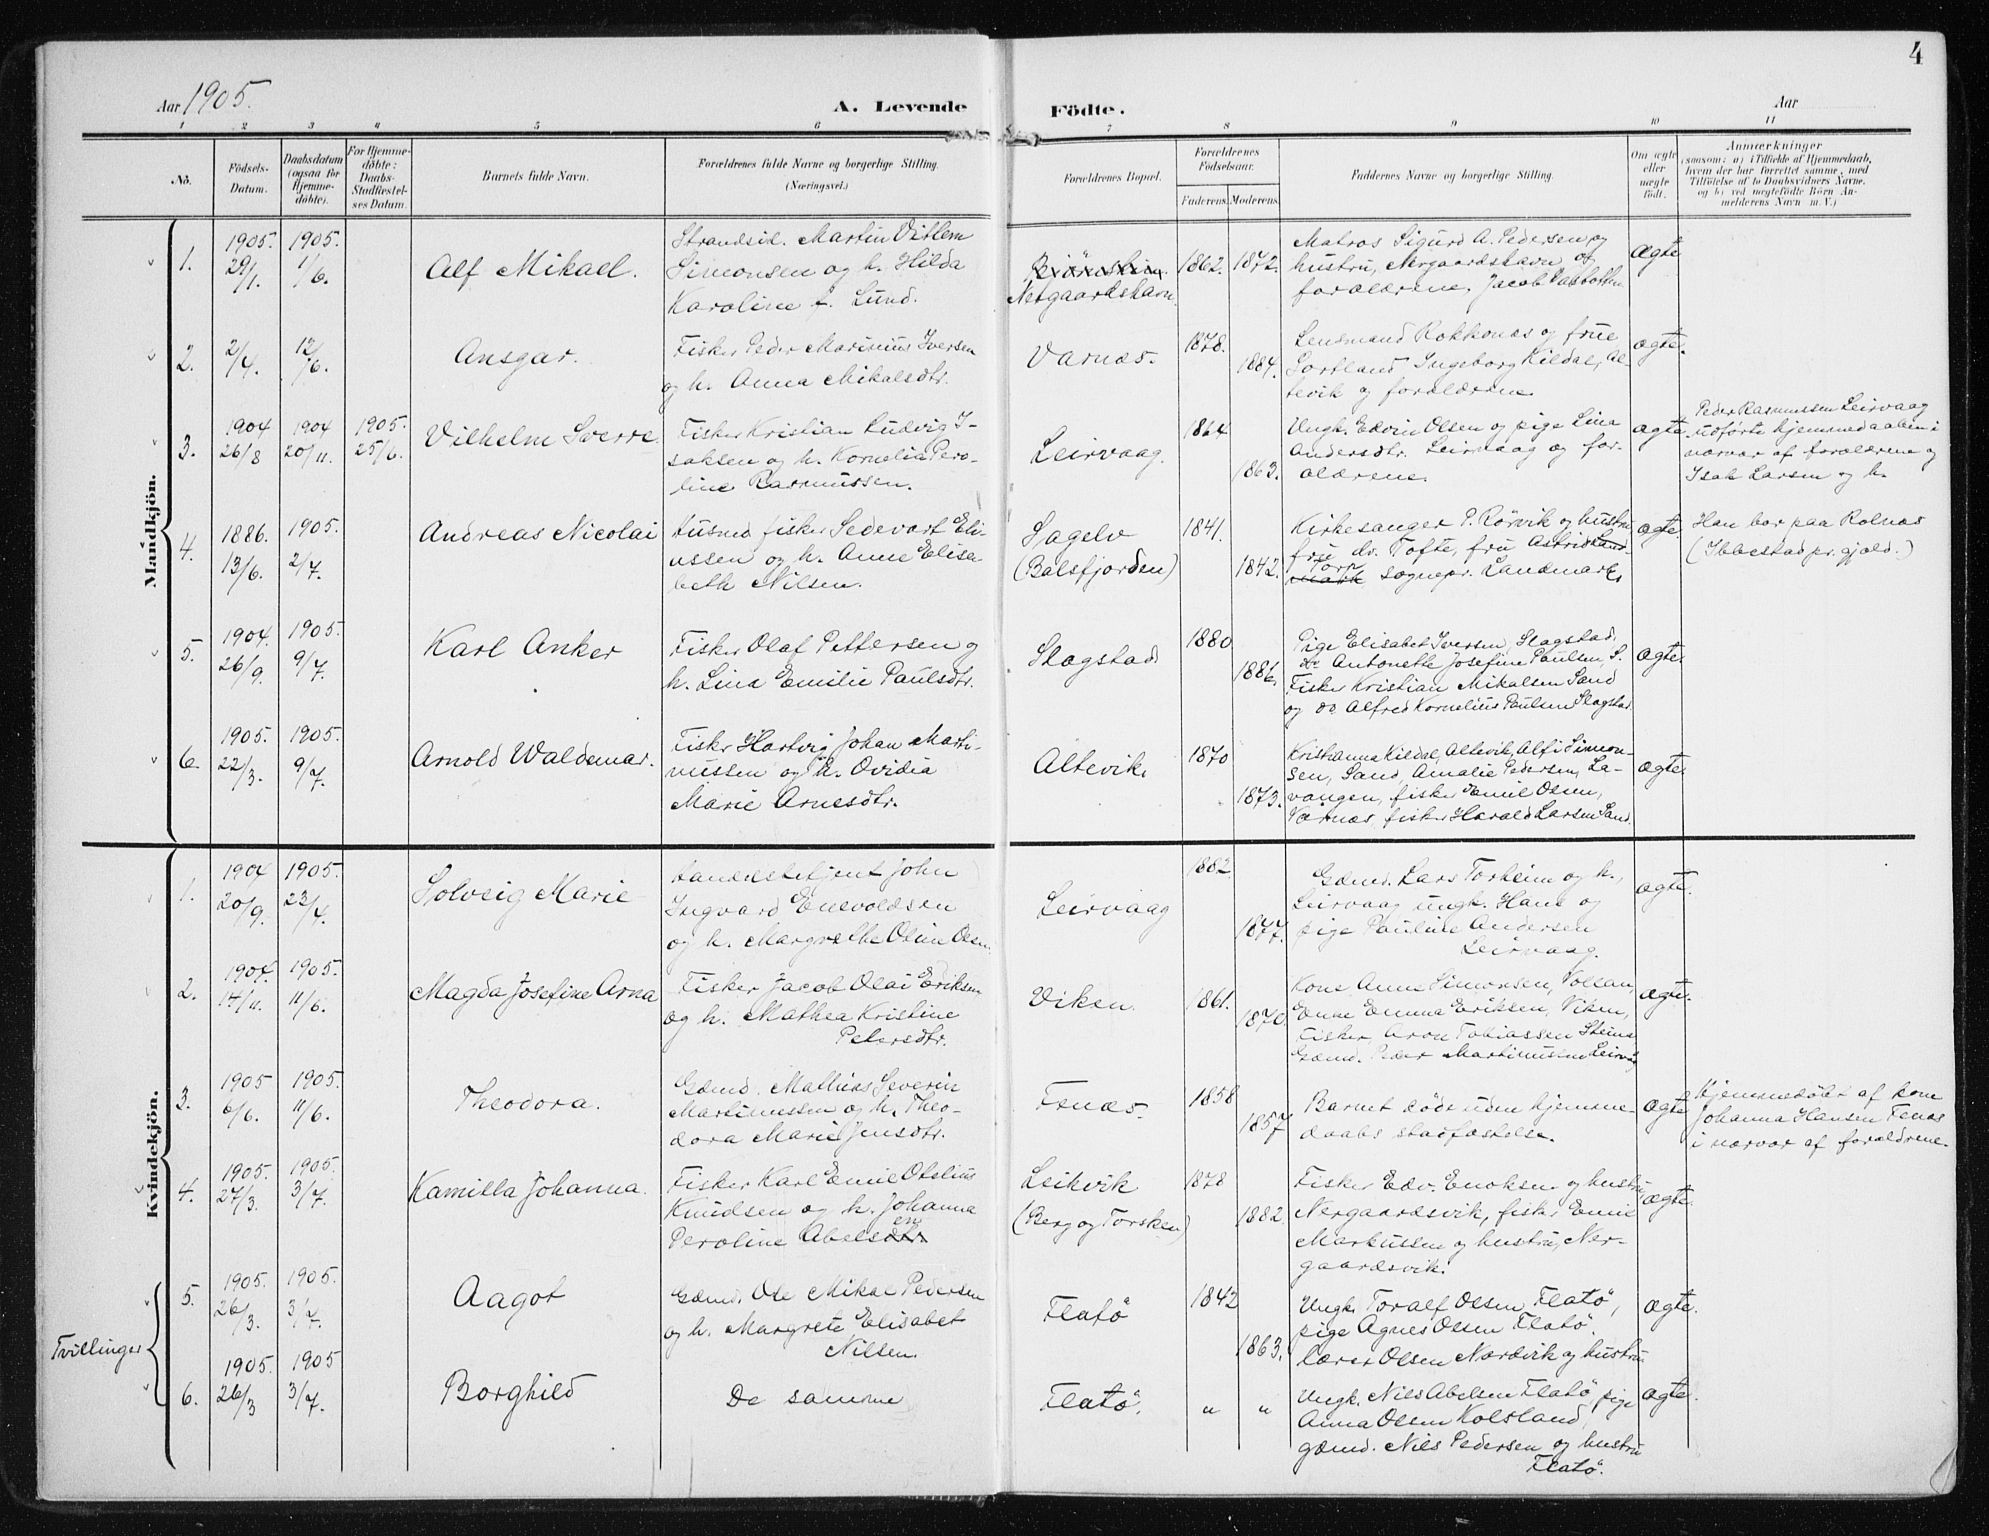 4
Aar 1905.
A. Levende
Födte.
Aar
1 2 3 4 5 6 7 8 9 10 11
No.
Födsels-
Datum.
Daabsdatum
(ogsaa for
Hjemme-
döbte).
For Hjemme-
döbte:
Daabs-
Stadfæstel-
ses Datum.
Barnets fulde Navn.
Forældrenes fulde Navne og borgerlige Stilling.
(Næringsvei.)
Forældrenes Bopæl.
Forældrenes
Födselsaar.
Faderens.
Moderens.
Faddernes Navne og borgerlige Stilling.
Om ægte
eller
uægte
födt.
Anmærkninger
(saasom: a) i Tilfælde af Hjemmedaab,
hvem der har forrettet samme, med
Tilföielse af to Daabsvidners Navne,
og b) ved uægtefödte Börn An-
melderens Navn m. V.)
Mandkjön.
1.
1905.
29/1.
1905.
1/6.
Alf Mikael.
Strandsid. Martin Vitlem
Simonsen og h. Hilda
Karoline f. Lund.
Nergaardshavn
1862.
1872.
Matros Sigurd A. Pedersen og
hustru, Nergaardshavn og
forældrene. Jacob
ægte
2.
2/4.
12/6.
Ansgar.
Fisker Peder Marinius Iversen
og h. Anna Mikalsdtr.
Varnæs.
1878.
1884.
Lensmand Rokkonæs og frue
Sortland Ingeborg Kildal, Al-
tevik og forældrene.
ægte.
3.
1904
26/8
1904
20/11.
1905.
25/6.
Vilhelm Sverre
Fisker Kristian Ludvig I-
saksen og h. Kornelia Pero-
line Rasmussen.
Leirvaag.
1864
1863.
Ungk. Edvin Olsen og pige Lina
Andersdtr. Leirvaag og for-
ældrene.
ægte
Peder Rasmussen Leirvaag
udførte hjemmedaaben i
nærvær af forældrene og
Isak Larsen og h.
4.
1886.
13/6.
1905.
2/7.
Andreas Nicolai
Husmd fisker Sedevart Eli-
ussen og h. Anne Elisa-
beth Nilsen.
Sagelv
(Balsfjorden)
1841.
1842.
Kirkesanger P. Rörvik og hustru
frue dv. Tofte, fru Astrid Land-
mark Torp sognepr. Landmark
ægte
Han bor paa Rolnæs
(Ibbestad pr.gjæld.)
5.
1904.
26/9.
1905.
9/7.
Karl Anker
Fisker Olaf Pettersen og
h. Lina Emilie Paulsdtr.
Slagstad
1880
1886.
Pige Elisabet Iversen, Slagstad,
do Antonette Josefine Paulsen, S.
Fisker Kristian Mikalsen Sand
og do Alfred Kornelius Paulsen Slagstad
ægte
6.
1905.
22/3.
1905.
9/7.
Arnold Waldemar.
Fisker Hartvig Johan Marti-
nussen og h. Ovidia
Marie Arnesdtr.
Altevik
1870
1873.
Kristianna Kildal, Altevik, Alfi Simon-
sen, Sand, Amalie Pedersen, La-
vangen, fisker Emil Olsen,
Varnæs, fisker Harald Larsen Sand.
ægte
Kvindekjön.
1.
1904
20/9.
1905.
23/4.
Solveig Marie
Handelsbetjent John
Ingvard Enevoldsen
og h. Margrethe Oline Olsen.
Leirvaag
1882
1877.
Gdmd. Lars Torheim og h.,
Leirvaag ungk. Hans og
pige Pauline Andersen
Leirvaag.
ægte.
2.
1904.
14/11.
1905.
11/6.
Magda Josefine Arna
Fisker Jacob Olai Eriksen
og h. Mathea Kristine
Petersdtr.
Viken
1861.
1870
Kone Anne Simonsen, Vollan
Enke Emma Eriksen, Viken,
Fisker Aron Tobiassen
Gdmd. Peder Martinussen Leirvåg
ægte.
3.
1905
6/6.
1905.
11/6.
Theodora.
Gdmd. Mathias Severin
Martinussen og h. Theo-
dora Marie Jensdtr.
Fenæs.
1858
1857
Barnet døde uden hjemme-
daabs stadfæstelse.
ægte
Hjemmedøbt af kone
Johanna Hansen Fenæs
i nærvær af forældrene.
4.
1905.
27/3.
1905.
3/7.
Kamilla Johanna.
Fisker Karl Emil Otelius
Knudsen og h. Johanna
Peroline Abelsen
Leikvik
(Berg og Torsken)
1878
1882.
Fisker Edv. Enoksen og hustru
Nergaardsvik, fisker Emil
Markussen og hustru, Ner-
gaardsvik.
ægte.
Tvillinger
5.
1905.
26/3.
1905.
3/7.
Aagot
Gdmd. Ole Mikal Pedersen
og h. Margrete Elisabet
Nilsen.
Flatö
1842
1863.
Ungk. Toralf Olsen Flatö,
pige Agnes Olsen Flatö,
lærer Olsen Nordvik og hustru
ægte.
6.
1905.
26/3
1905
3/7.
Borghild
De samme
Flatö.
"
"
Ungk. Nils Abelsen Flatö, pige
Anna Olsen Kolsland,
gdmd. Nils Pedersen og hustru
Flatö.
ægte.